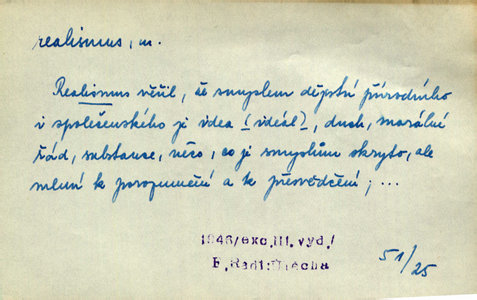 realismus, m.
Realismus věřil, že smyslem dějství přírodního
i společenského je idea (ideál), duch, morální
řád, substance, něco, co je smyslům skryto, ale
mluví k porozumění a k přesvědčení; ...
1946/exc.III.vyd./
F. Rádl: Útěcha
51/25